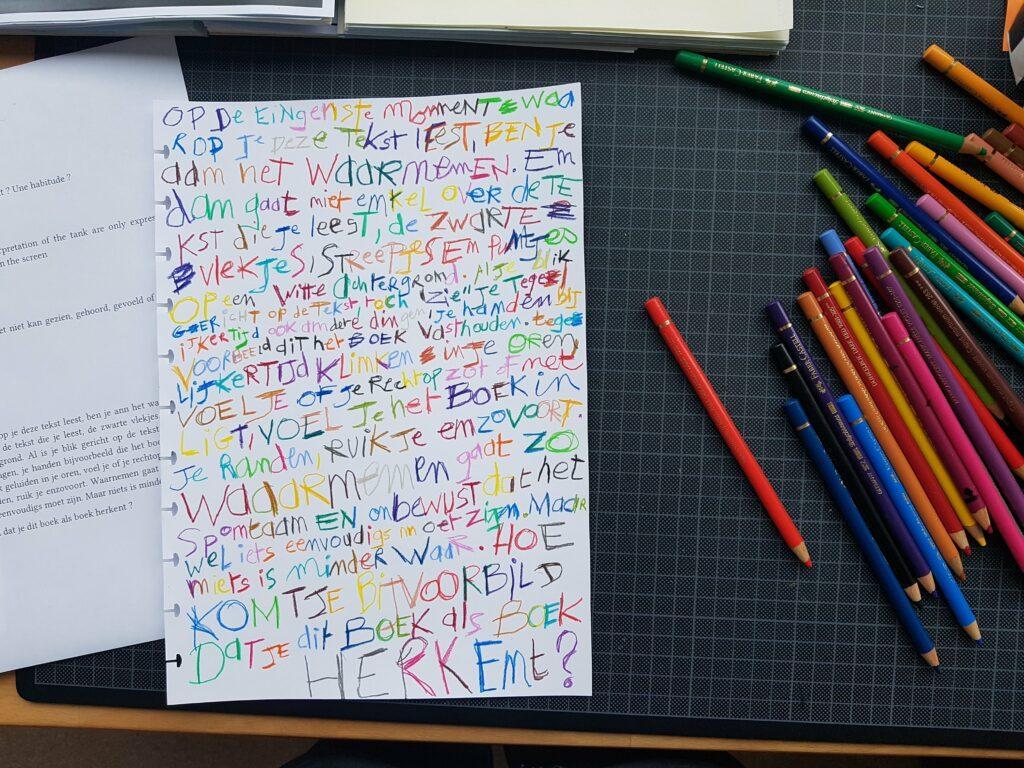 t ? Une habitude ?
rpretation of the tank are only expres
n the screen
et niet kan gezien, gehoord, gevoeld of
op je deze tekst leest, ben je ann het wa
de tekst die je leest, de zwarte vlekjes
grond. Al is je blik gericht op de tekst
ngen, je handen bijvoorbeeld die het boe
k geluiden in je oren, voel je of je rechtop
den, ruik je enzovoort. Waarnemen gaat
eenvoudigs moet zijn. Maar niets is minde
dat je dit boek als boek herkent ?
OP De EiNgeNSte moMENT waa
ROP je Deze TeKst lEEST, BEN je
aam het WAARMEMEN. EM
dam gaat miet emKEL over de TE
Kst die je leest, de ZWARTE
vleKjeS, STREEPJES EM PUMTJes
OP een WITTe achtergromd. Al je blik
GERICHT OP de TeKst, toch "Zie" je Tege
ijKerTijd ook amdere dimgen, je hamden BIJ
VOORBEELD dit het BOEK Vasthouden. tege
LIJKERTIJd KLIMKEN im je OREN
VOEL JE OF je Rechtop zot of met
LIGT, VOEL Je het BOEK in
je handen, RUIK je emzoVOORT.
WaaRMemen gaat ZO
SpomtaamEN onbewust dat het
weL iets eenvoudigs moet zijm. Maar
miets is minder WaaR. HOE
KOMT JE BIJVOORBILD
Dat JE dit BOEK als BOEK
HERKEmt?
FABER-CASTELL